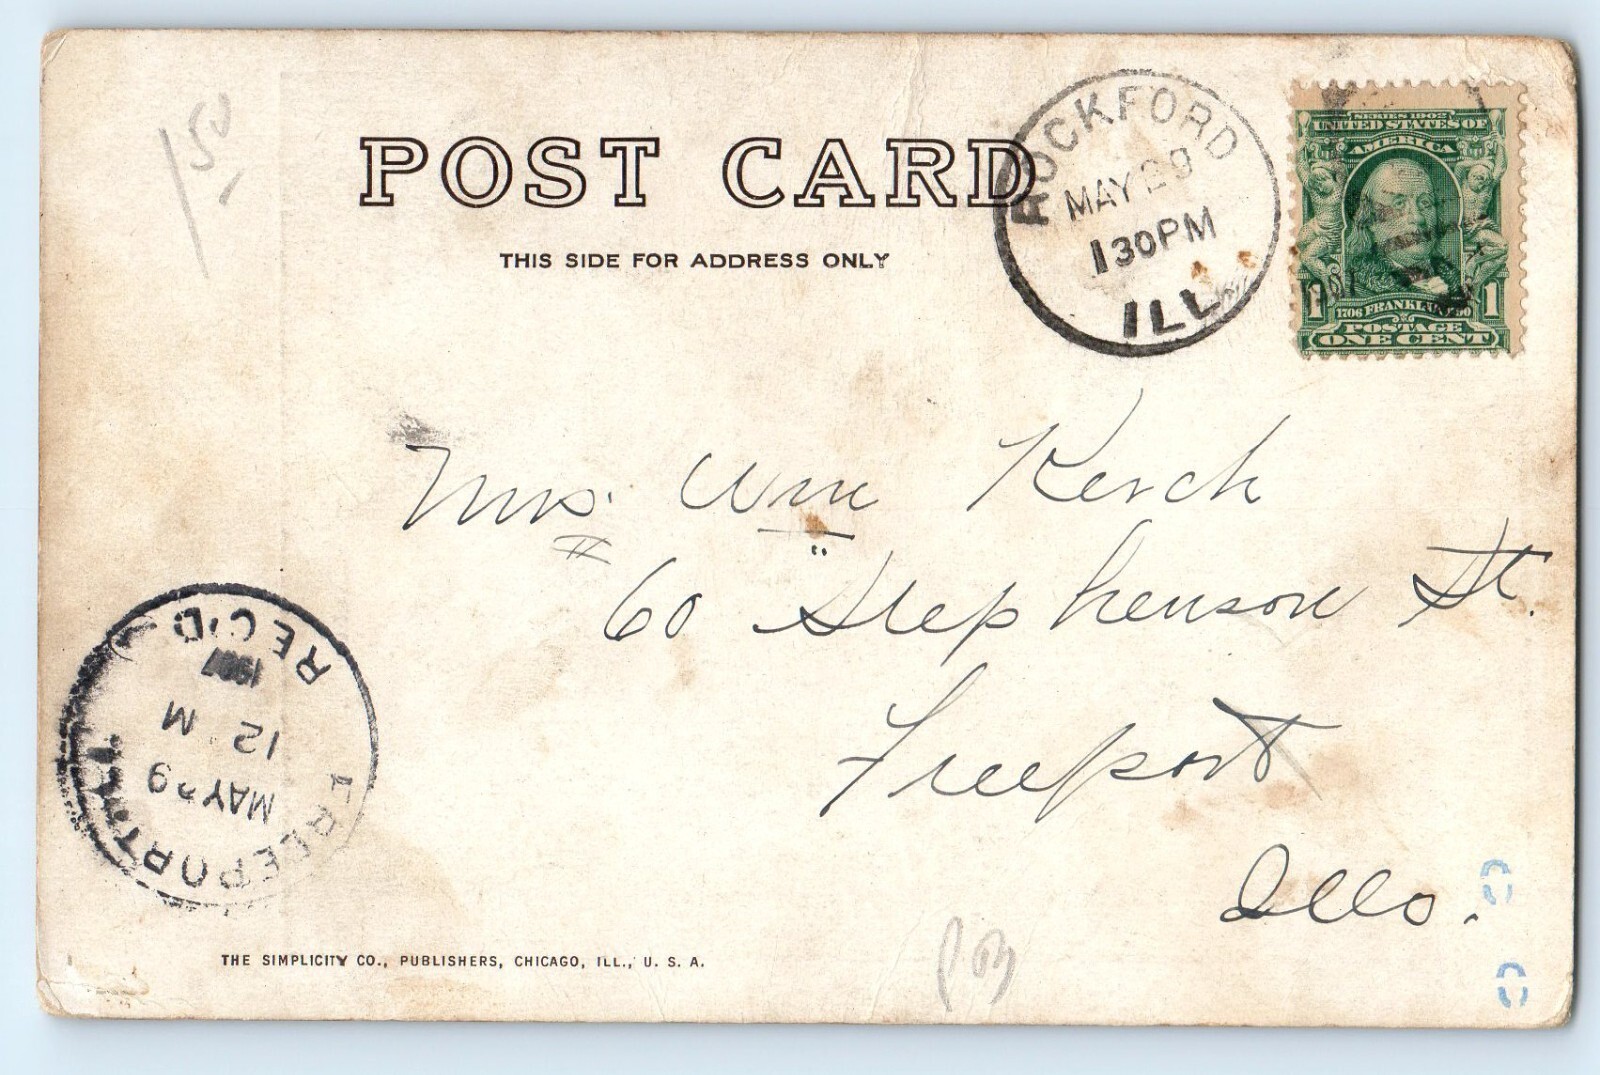 150
POST CARD
THIS SIDE FOR ADDRESS ONLY
ROCKFORD
MAY 29
130PM
ILL.
SERIES 1902
UNITED STATES OF
AMERICA
1 1706 FRANKLIN 1790 1
POSTAGE
ONE CENT
Mrs. Wm Kerch
60 Stephenson St.
Freeport
Ills.
FREEPORT, ILL.
MAY 29
12 M
1907
REC'D
THE SIMPLICITY CO., PUBLISHERS, CHICAGO, ILL., U. S. A.